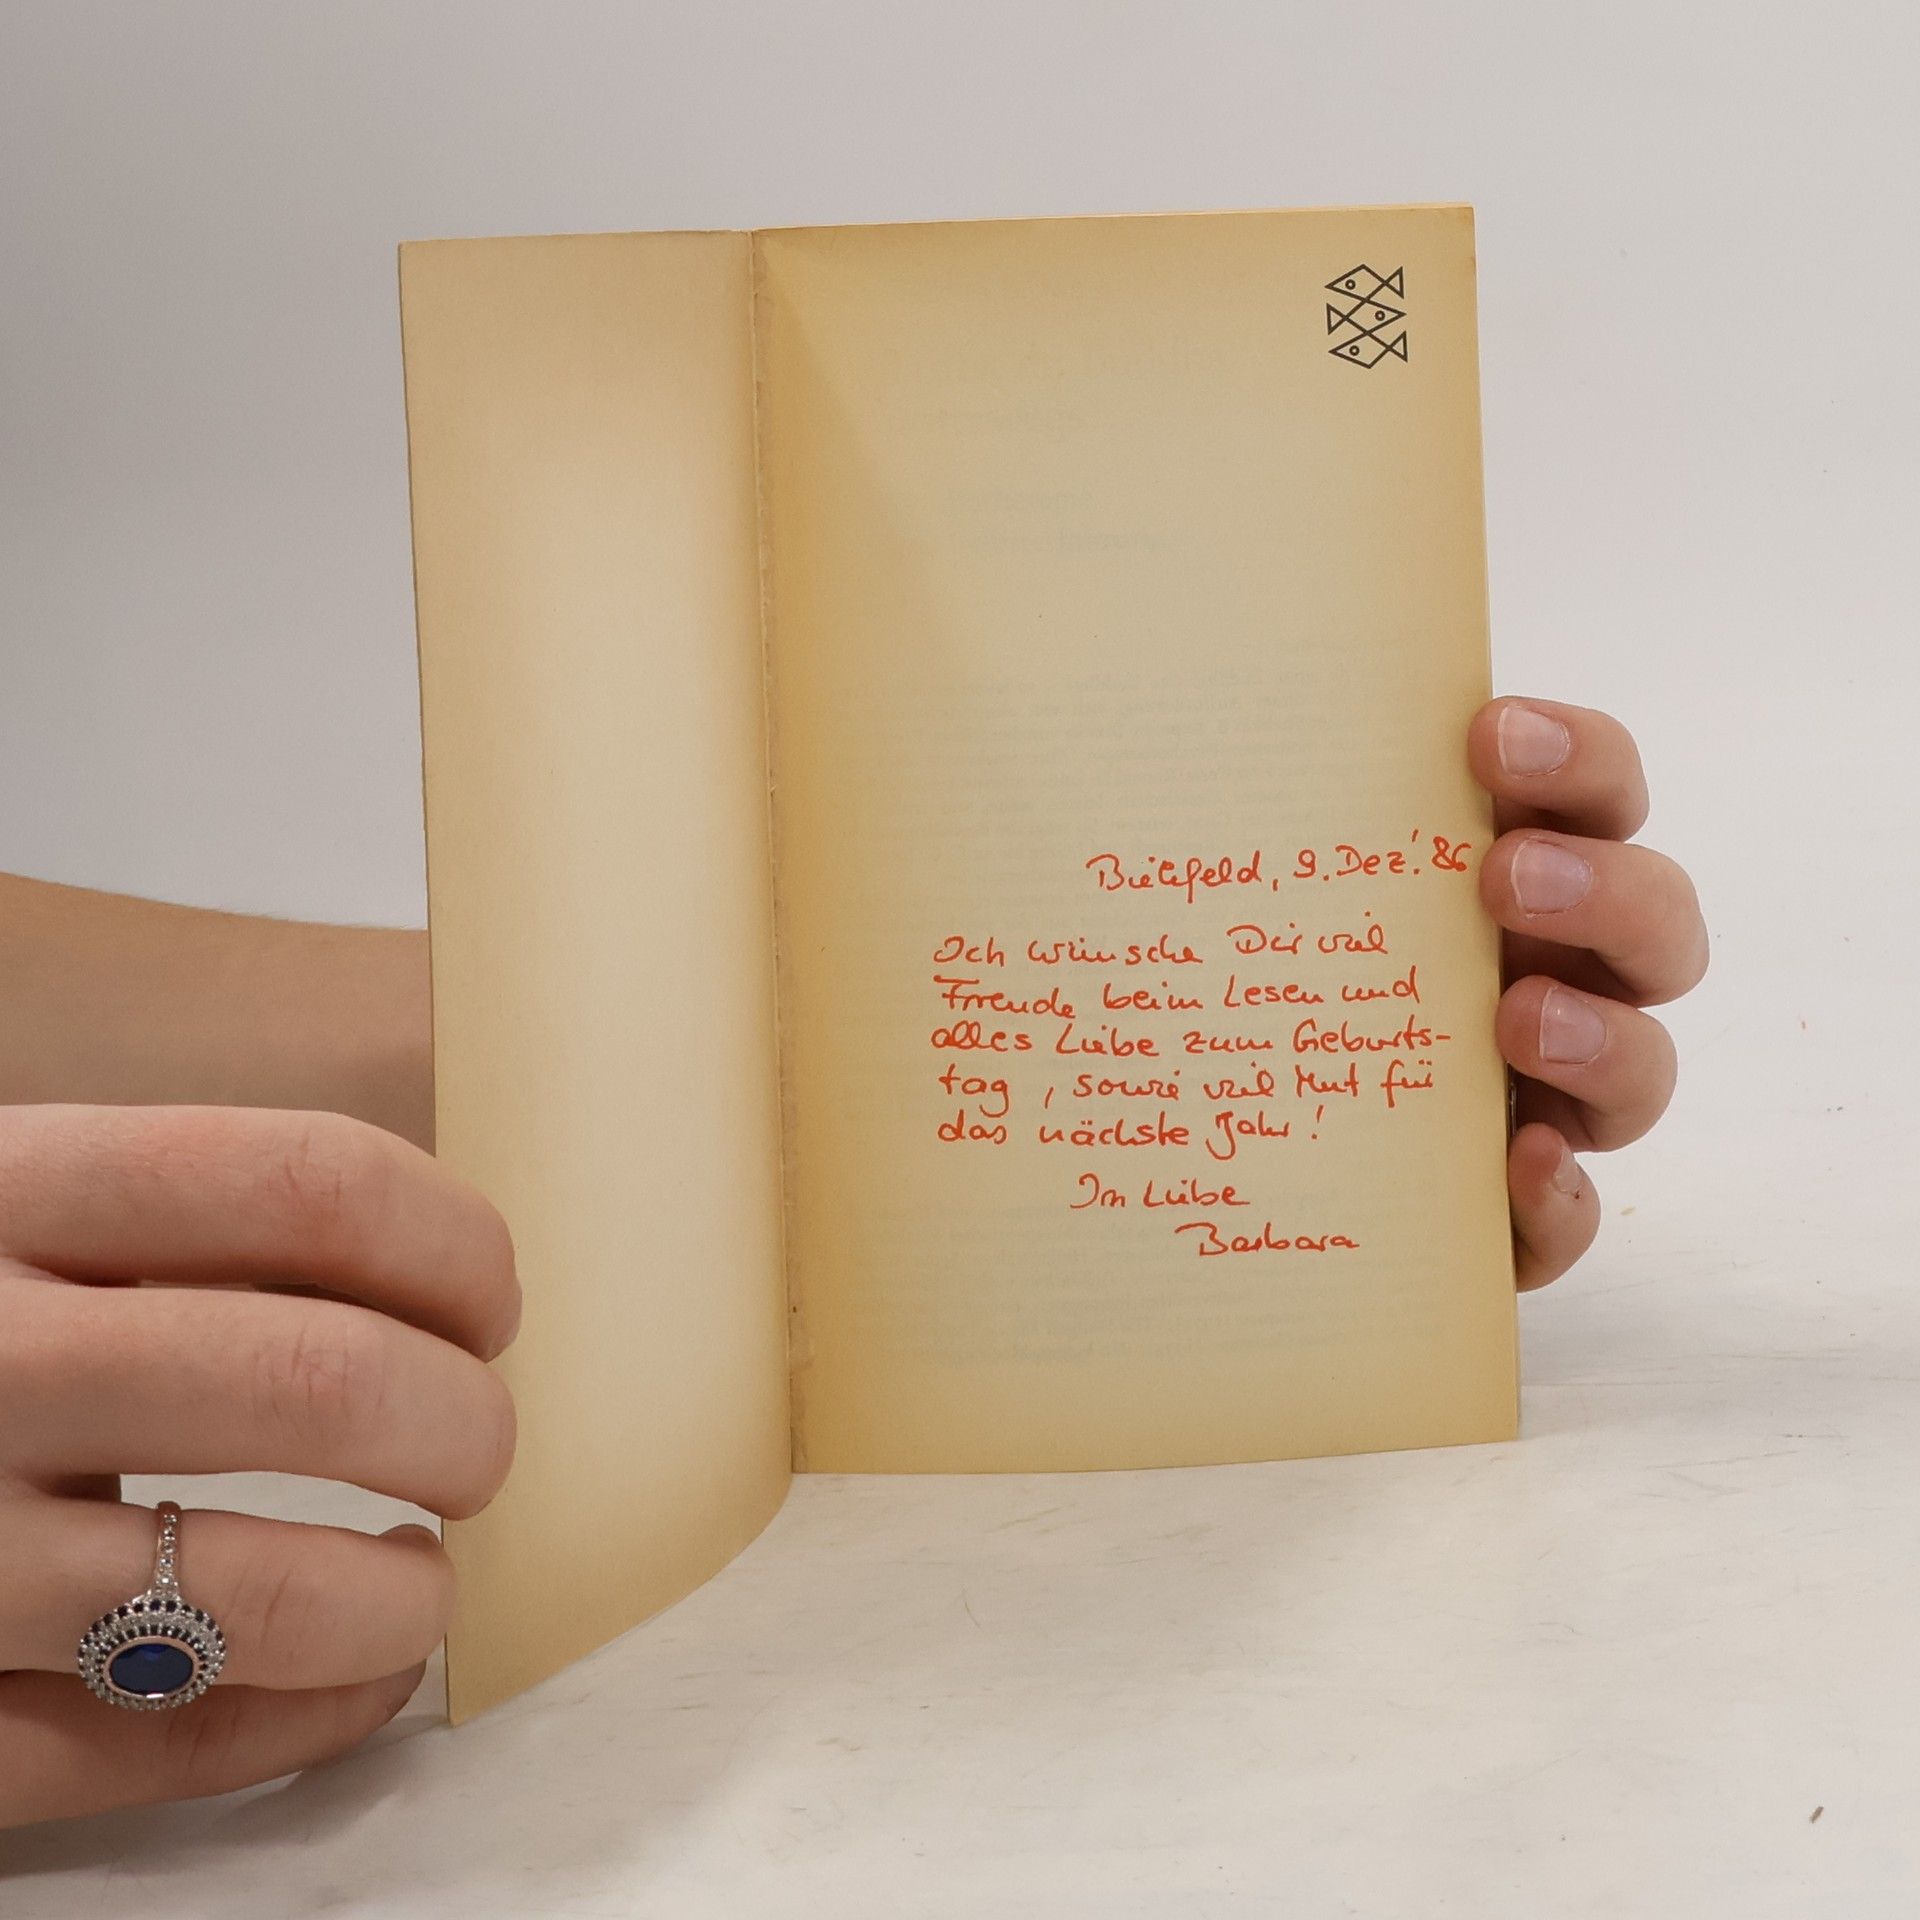 Bielefeld, 9. Dez.' 86
Ich wünsche Dir viel
Freude beim Lesen und
alles Liebe zum Geburts-
tag, sowie viel Mut für
das nächste Jahr!
In Liebe
Barbara